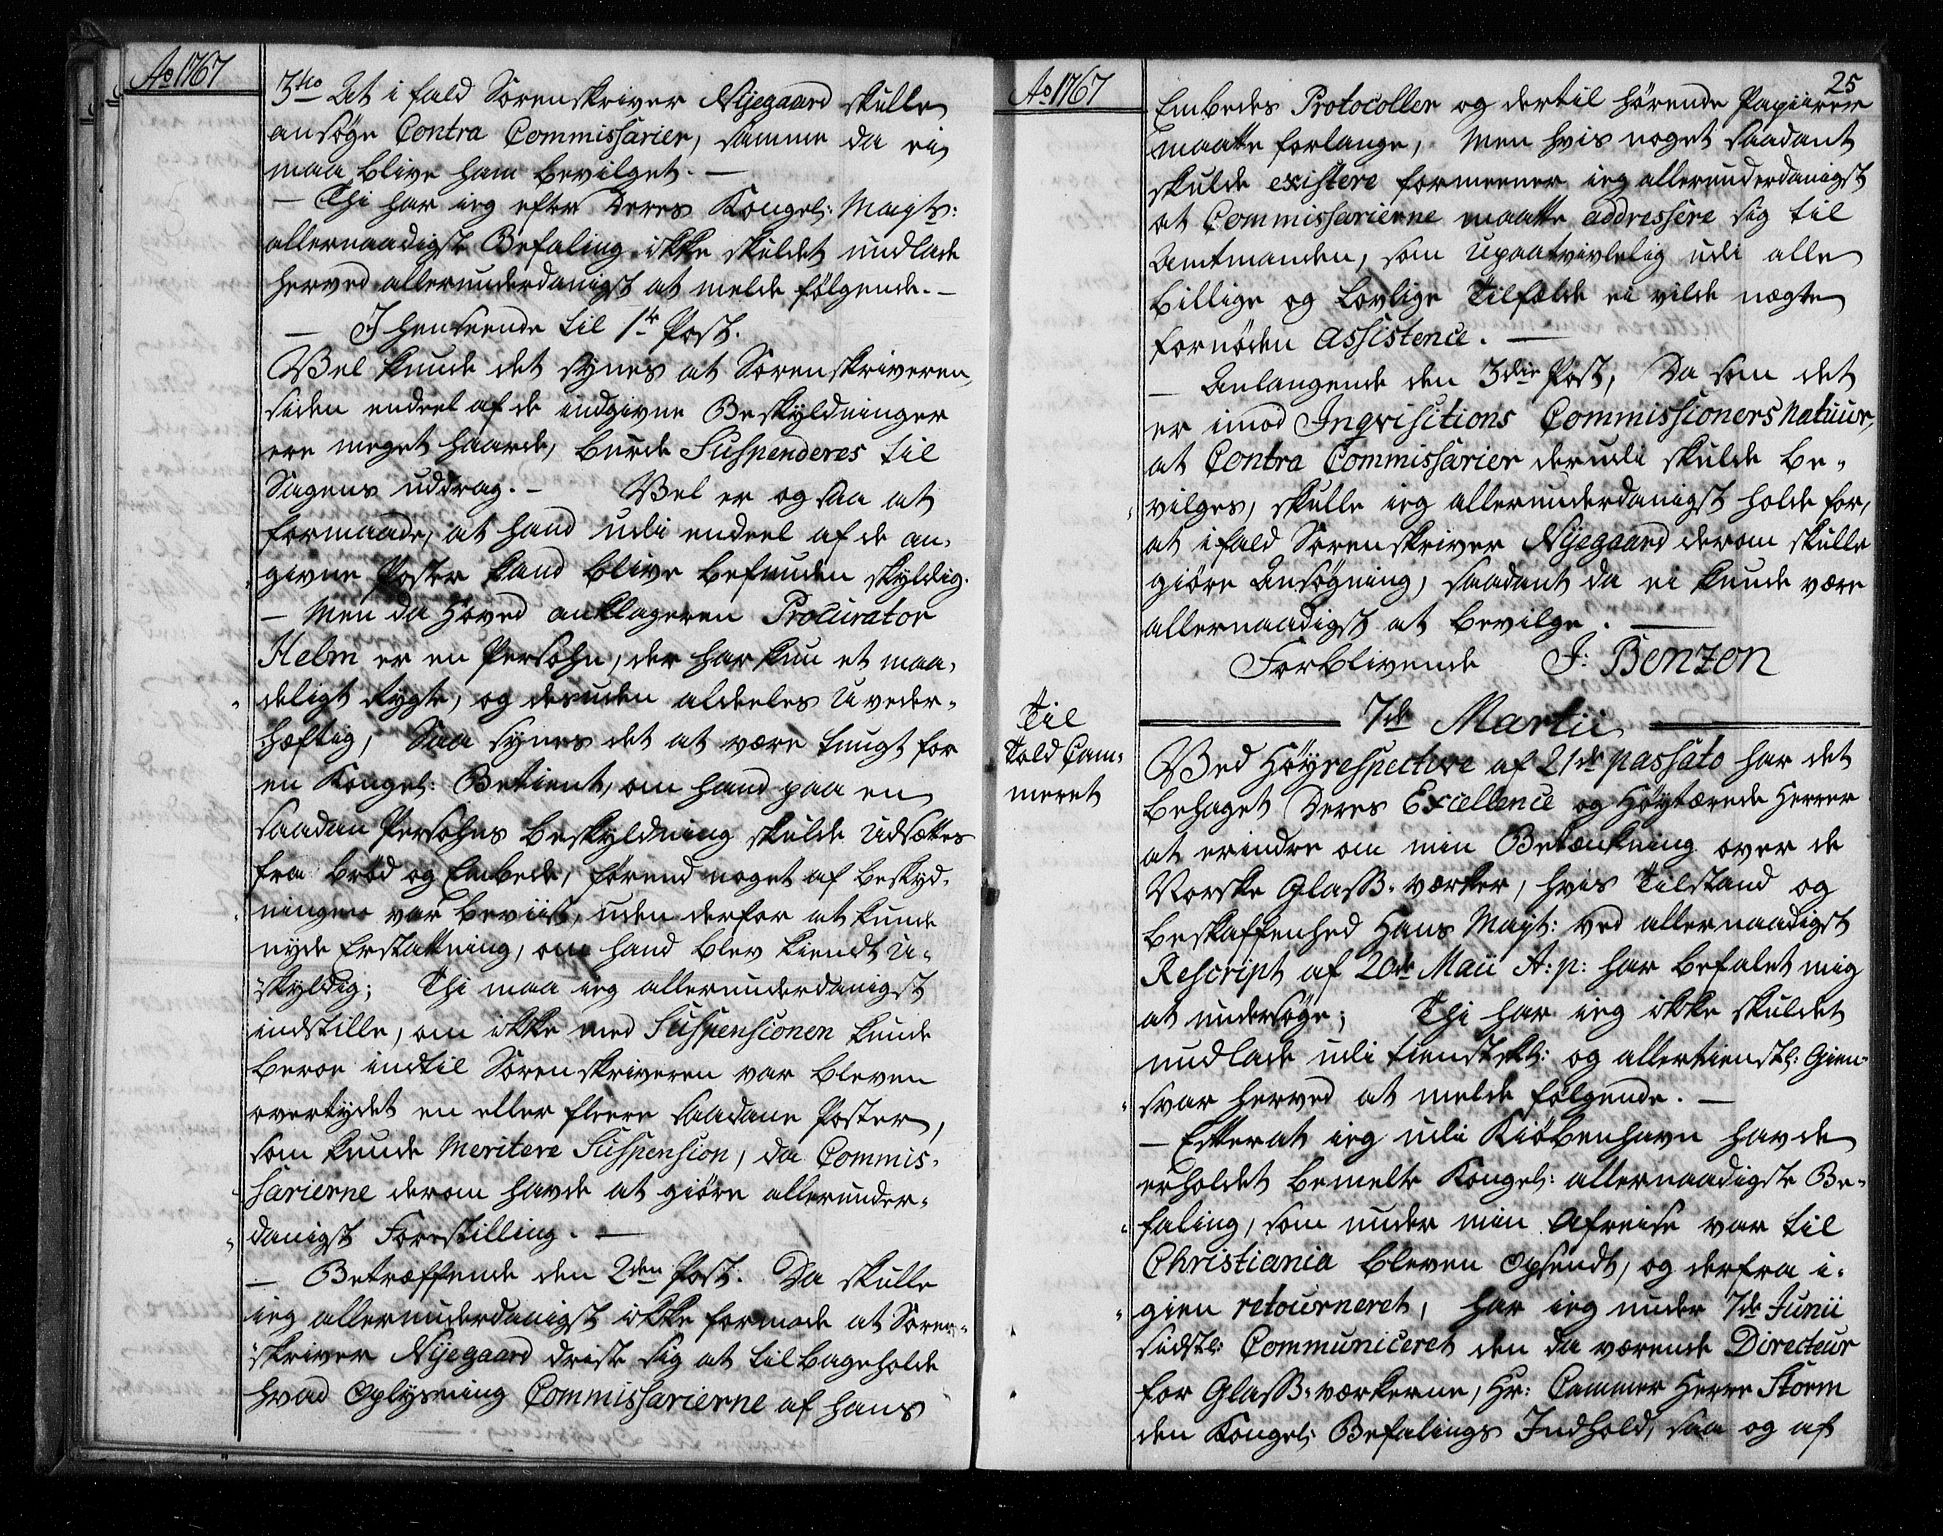 Ao 1767
3tio At i fald Sorenskriver Nijegaard skulle
ansøge Contra Commissarier, samme da ei
maa blive ham bevilget. —
— Thi har ieg efter Deres Kongel: Mayts:
allernaadigste Befaling ikke skuldet undlade
herved allerunderdanigst at melde følgende. —
— I henseende til 1te Post.
Vel kunde det synes at Sorenskriveren,
siden endeel af de indgivne Beskyldninger
ere meget haarde, burde Suspenderes til
Sagens uddrag. — Vel er og saa at
formode, at hand udi endeel af de an-
givne Poster kand blive befunden skyldig.
— Men da Hoved anklageren Procurator
Helm er en Persohn, der har kun et maa-
deligt Rygte, og desuden aldeles uveder-
hæftig, Saa synes det at være tungt for
en Kongel: Betient, om hand paa en
saadan Persohns beskyldning skulde udsættes
fra brød og Embede, førend noget af beskyd-
ningene var beviist, uden derfor at kunde
nyde Erstatning, om hand blev kiendt u-
skyldig; Thi maa ieg allerunderdanigst
indstille, om ikke med Suspensionen kunde
beroe indtil Sorenskriveren var bleven
overtydet en eller fleere saadane Poster,
som kunde Meritere Suspension, da Commis-
sarierne derom havde at giøre allerunder-
danigst Forestilling. —
— Betræffende den 2den Post. Da skulle
ieg allerunderdanigst ikke formode at Soren-
skriver Nijegaard driste sig at tilbageholde
hvad Oplysning Commissarierne af hans
Ao 1767
25
Embedes Protocoller og dertil hørende Papiirer
maatte forlange, Men hvis noget saadant
skulde existere formeener ieg allerunderdanigst
at Commissarierne maatte addressere sig til
Amtmanden, som upaatvivlelig udi alle
billige og Lovlige Tilfælde ei vilde nægte
fornøden Assistence. —
— Anlangende den 3die Post, Da som det
er imod Inqvisitions Commissioners Natuur,
at Contra Commissarier derudi skulde be-
vilges, skulle ieg allerunderdanigst holde for,
at ifald Sorenskriver Nijegaard derom skulle
giøre Ansøgning, saadant da ei kunde være
allernaadigst at bevilge. —
Forblivende J: Benzon
7de Martii
Til
Told Cam-
meret
Ved Høyrespective af 21de passato har det
behaget Deres Excellence og Høytærede Herrer
at erindre om min Betænkning over de
Norske Glass-værker, hvis Tilstand og
beskaffenhed Hans Mayt: ved allernaadigst
Rescript af 20de Maii A: p: har befalet mig
at undersøge; Thi har ieg ikke skuldet
undlade udi tienstskl: og allertienstl: Gien-
svar herved at melde følgende. —
— Efterat ieg udi Kiøbenhavn havde
erholdet bemelte Kongel: allernaadigste Be-
faling, som under min Afreise var til
Christiania bleven Opsendt, og derfra i-
gien retourneret, har ieg under 7de Junii
sidstl: Communiceret den da værende Directeur
for Glass-værkerne, Hr: Cammer Herre Storm
den Kongel: Befalings Indhold, saa og af